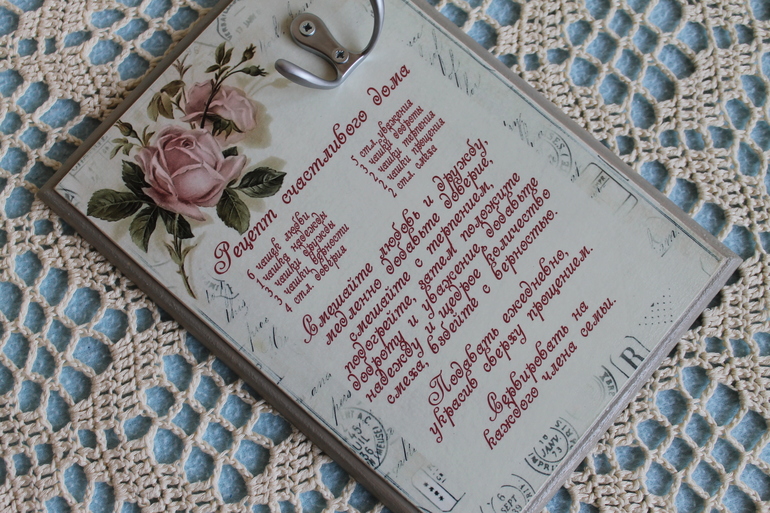 Рецепт счастливого дома
6 чашек любви
1 чашка надежды
2 чашки дружбы
3 чашки верности
4 стл. доверия
5 стл. уважения
3 чашки доброты
2 чашки терпения
1 чашки прощения
2 стл. смеха
Смешайте любовь и дружбу,
медленно добавьте доверие,
смешайте с терпением,
подогрейте, затем положите
доброту и уважение, добавьте
надежду и щедрое количество
смеха, взбейте с верностью.
Подавать ежедневно,
украсив сверху прощением.
Варьировать на
каждого члена семьи.
R